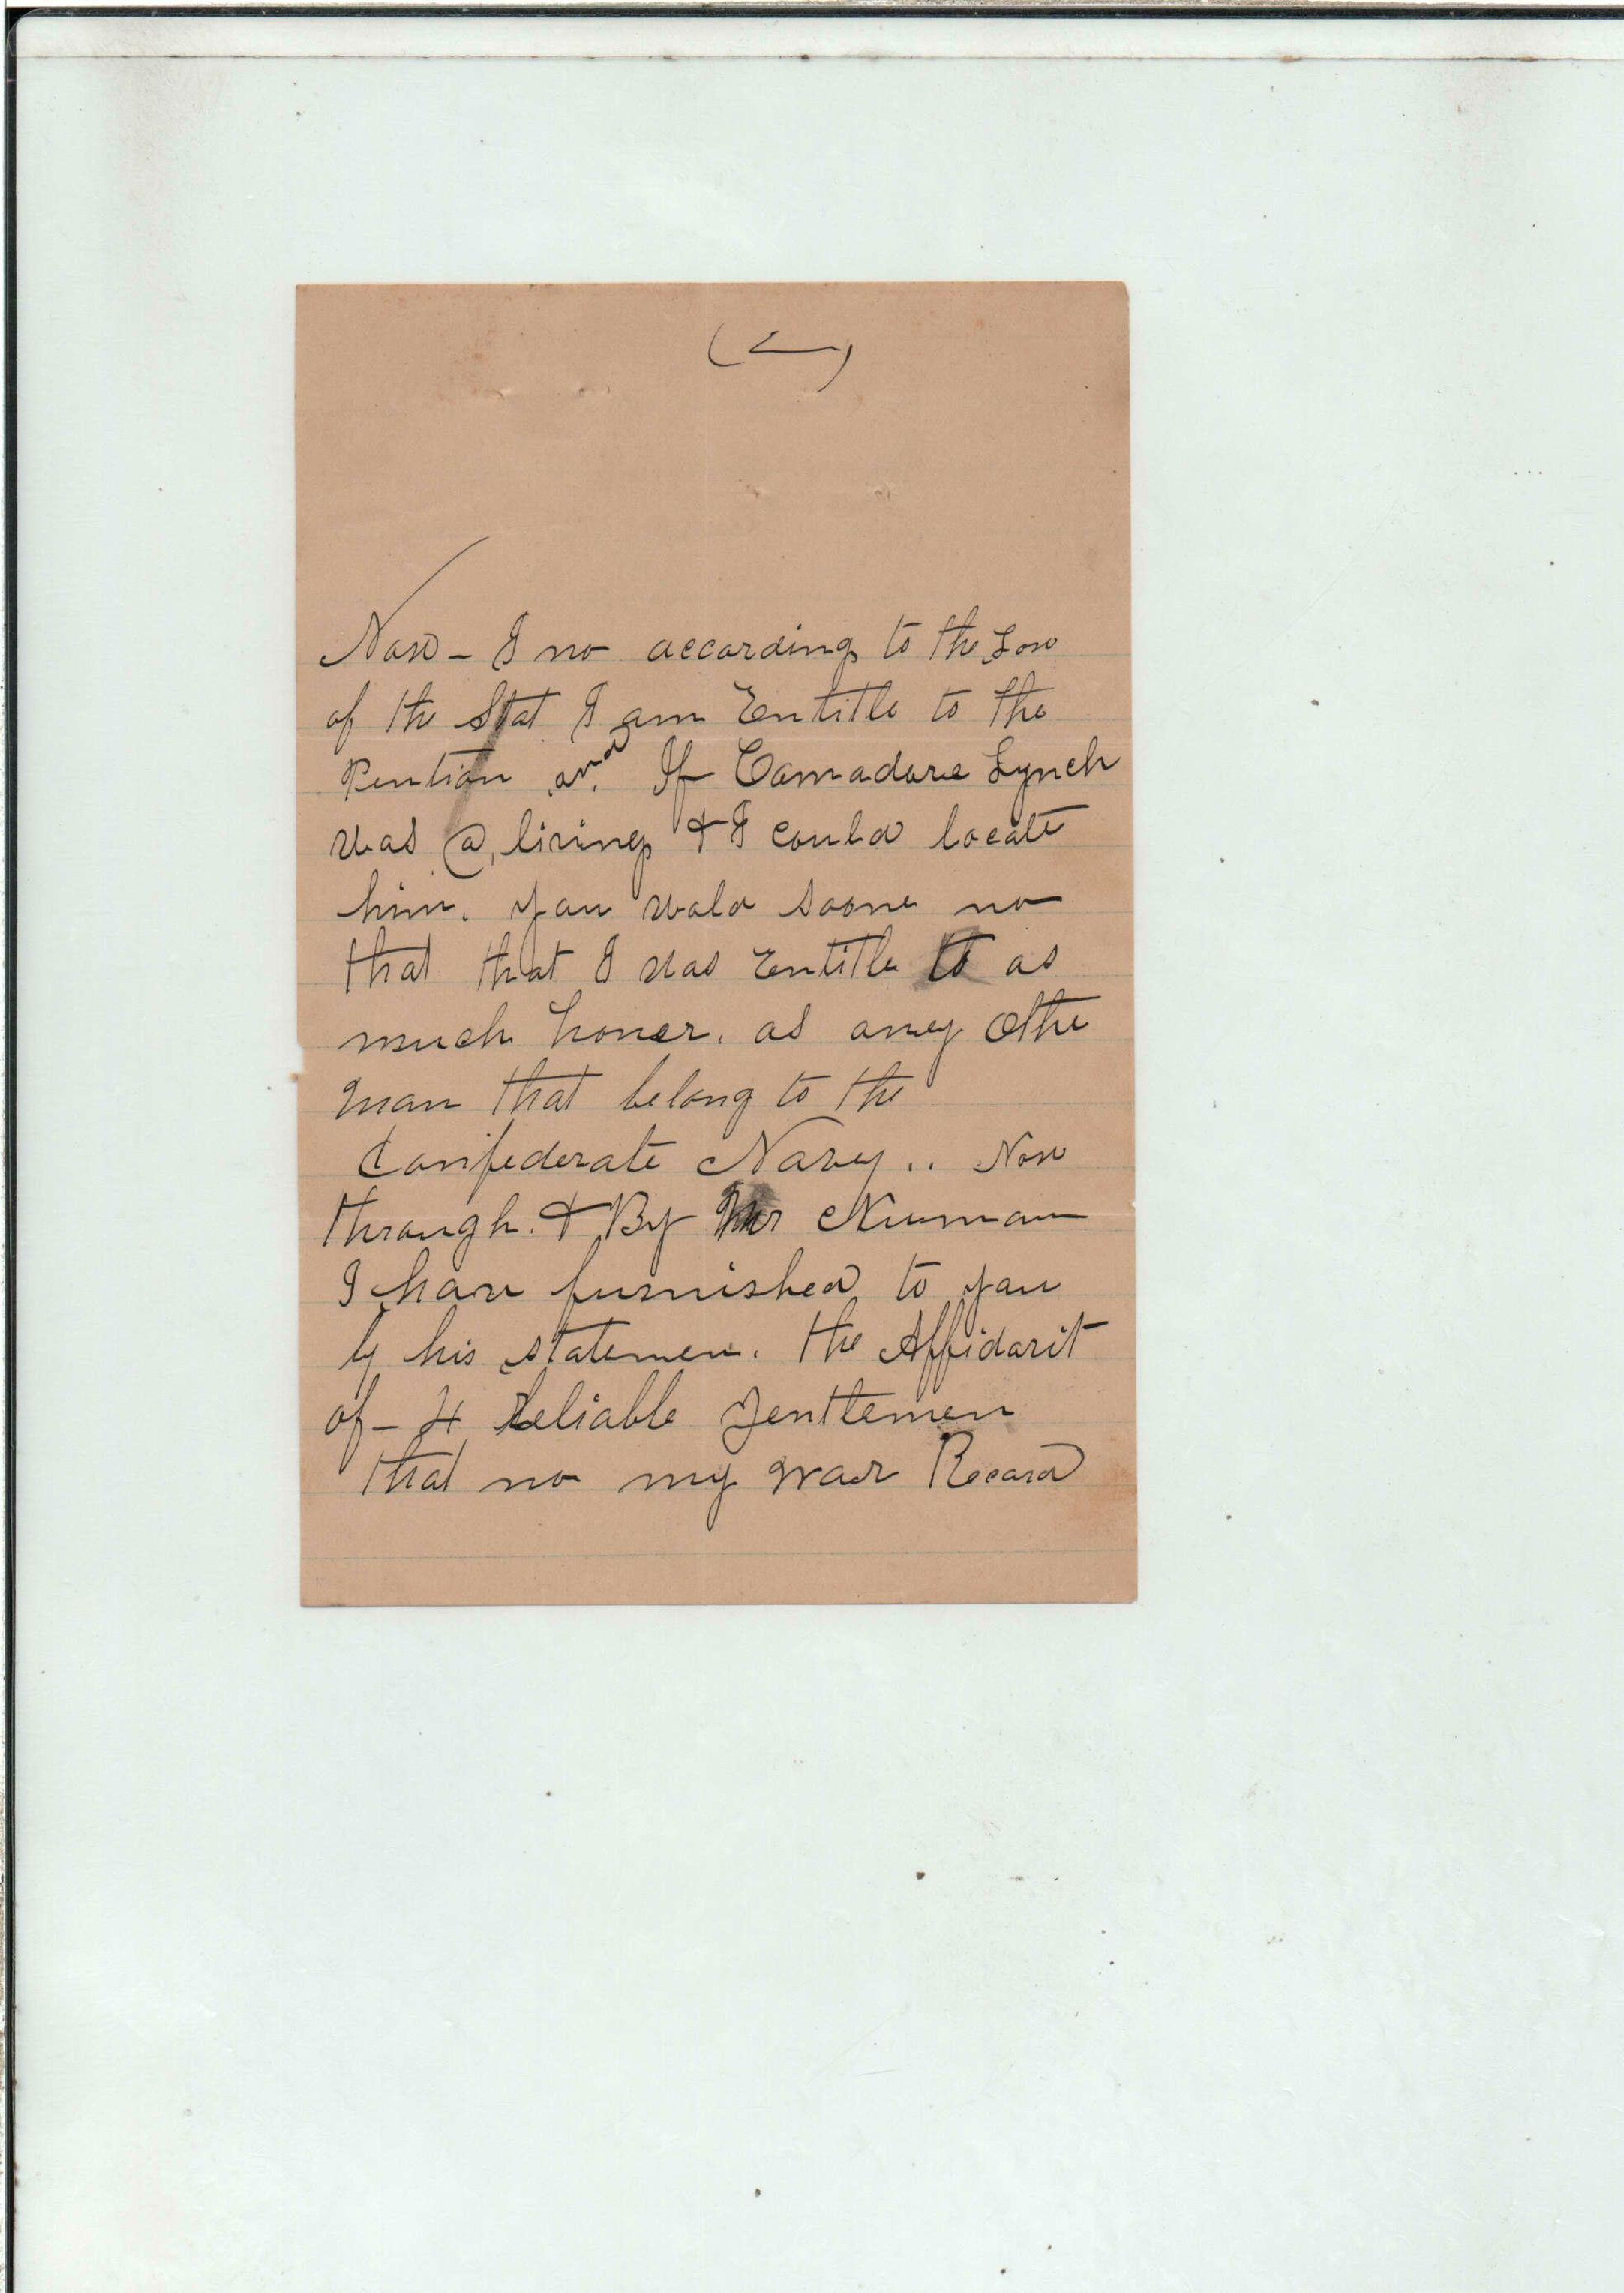 (2)
Now - I no according to the Low
of the Stat I am Entitle to the
Pention and If Comadore Lynch
was a, living & I could locate
him. you wold soone no
that that I was Entitle to as
much honer. as aney Othe
man that belong to the
Confederate Navey .. Now
through. & By Mr Numan
I have furnished to you
by his statemen. the Affidavit
of - 4 Reliable Gentlemen
that no my war Record